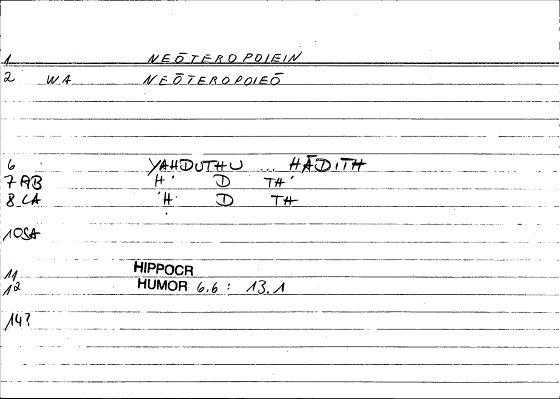 1 NEŌTEROPOIEIN
2 WA NEŌTEROPOIEŌ
6 YAḤDUTHU ... ḤĀDITH
7 RB Ḥ D TH
8 LA Ḥ D TH
10 SA
11 HIPPOCR
12 HUMOR 6.6 : 13.1
14?